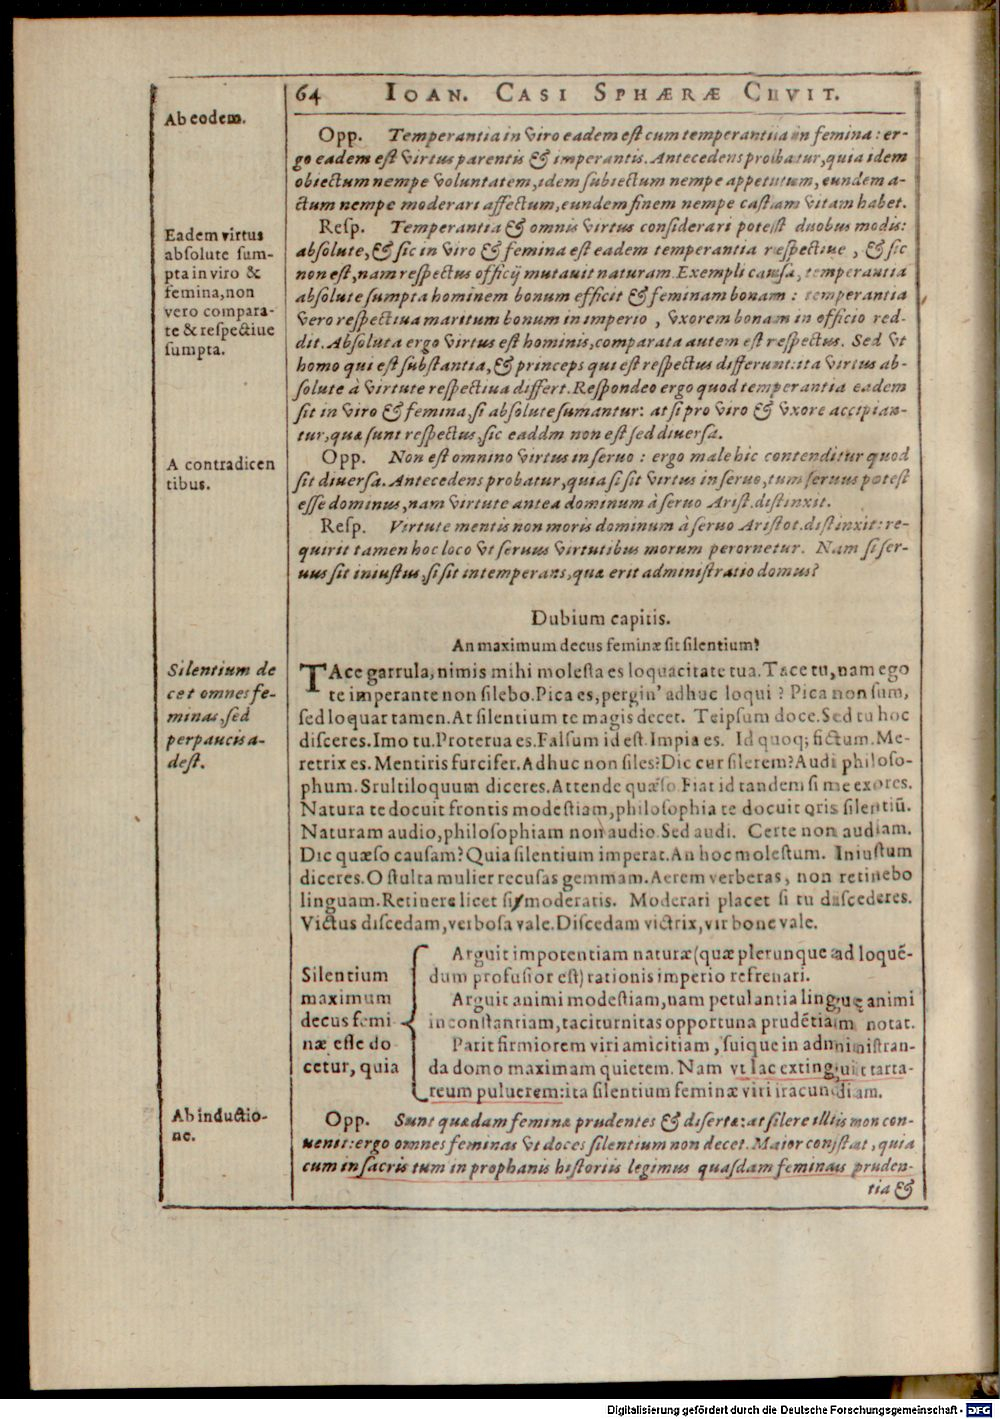 64 IOAN. CASI SPHÆRÆ CIIVIT.
Ab eodem.
Opp. Temperantia in viro eadem est cum temperantiia in femina: er-
go eadem est virtus parentis & imperantis. Antecedens probatur, quia idem
obiectum nempe voluntatem, idem subiectum nempe appetitum, eundem a-
ctum nempe moderari affectum, eundem finem nempe castam vitam habet.
Eadem virtus
absolute sum-
pta in viro &
femina, non
vero compara-
te & respectiue
sumpta.
Resp. Temperantia & omnis virtus considerari potest duobus modis:
absolute, & sic in viro & femina est eadem temperantia respectiue, & sic
non est, nam respectus officij mutauit naturam. Exempli causa, temperantia
absolute sumpta hominem bonum efficit & feminam bonam: temperantia
vero respectiua maritum bonum in imperio, vxorem bonam in officio red-
dit. Absoluta ergo virtus est hominis, comparata autem est respectus. Sed vt
homo qui est substantia, & princeps qui est respectus differunt: ita virtus ab-
solute à virtute respectiua differt. Respondeo ergo quod temperantia eadem
sit in viro & femina, si absolute sumantur: at si pro viro & vxore accipian-
tur, quæ sunt respectus, sic eaddm non est sed diuersa.
A contradicen
tibus.
Opp. Non est omnino virtus in seruo: ergo male hic contenditur quod
sit diuersa. Antecedens probatur, quia si sit virtus in seruo, tum seruus potest
esse dominus, nam virtute antea dominum à seruo Arist. distinxit.
Resp. Virtute mentis non moris dominum à seruo Aristot. distinxit: re-
quirit tamen hoc loco vt seruus virtutibus morum perornetur. Nam si ser-
uus sit iniustus, si sit intemperans, quæ erit administratio domus?
Dubium capitis.
An maximum decus feminæ sit silentium?
Silentium de
cet omnes fe-
minas, sed
perpaucis a-
dest.
TAce garrula, nimis mihi molesta es loquacitate tua. Tace tu, nam ego
te imperante non silebo. Pica es, pergin' adhuc loqui? Pica non sum,
sed loquar tamen. At silentium te magis decet. Teipsum doce. Sed tu hoc
disceres. Imo tu. Proterua es. Falsum id est. Impia es. Id quoq; fictum. Me-
retrix es. Mentiris furcifer. Adhuc non siles? Dic cur silerem? Audi philoso-
phum. Srultiloquum diceres. Attende quæso. Fiat id tandem si me exores.
Natura te docuit frontis modestiam, philosophia te docuit oris silentiū.
Naturam audio, philosophiam non audio. Sed audi. Certe non audiam.
Dic quæso causam? Quia silentium imperat. An hoc molestum. Iniustum
diceres. O stulta mulier recusas gemmam. Aerem verberas, non retinebo
linguam. Retinere licet si moderatis. Moderari placet si tu discederes.
Victus discedam, verbosa vale. Discedam victrix, vir bone vale.
Silentium
maximum
decus femi
næ esse do
cetur, quia
Arguit impotentiam naturæ (quæ plerunque ad loquē-
dum profusior est) rationis imperio refrenari.
Arguit animi modestiam, nam petulantia linguę animi
inconstantiam, taciturnitas opportuna prudētiam notat.
Parit firmiorem viri amicitiam, suique in administran-
da domo maximam quietem. Nam vt lac extinguit tarta-
reum puluerem: ita silentium feminæ viri iracundiam.
Ab inductio-
ne.
Opp. Sunt quædam feminæ prudentes & disertæ: at silere illis non con-
uenit: ergo omnes feminas vt doces silentium non decet. Maior constat, quia
cum in sacris tum in prophanis historiis legimus quasdam feminas pruden-
tia &
Digitalisierung gefördert durch die Deutsche Forschungsgemeinschaft - DFG